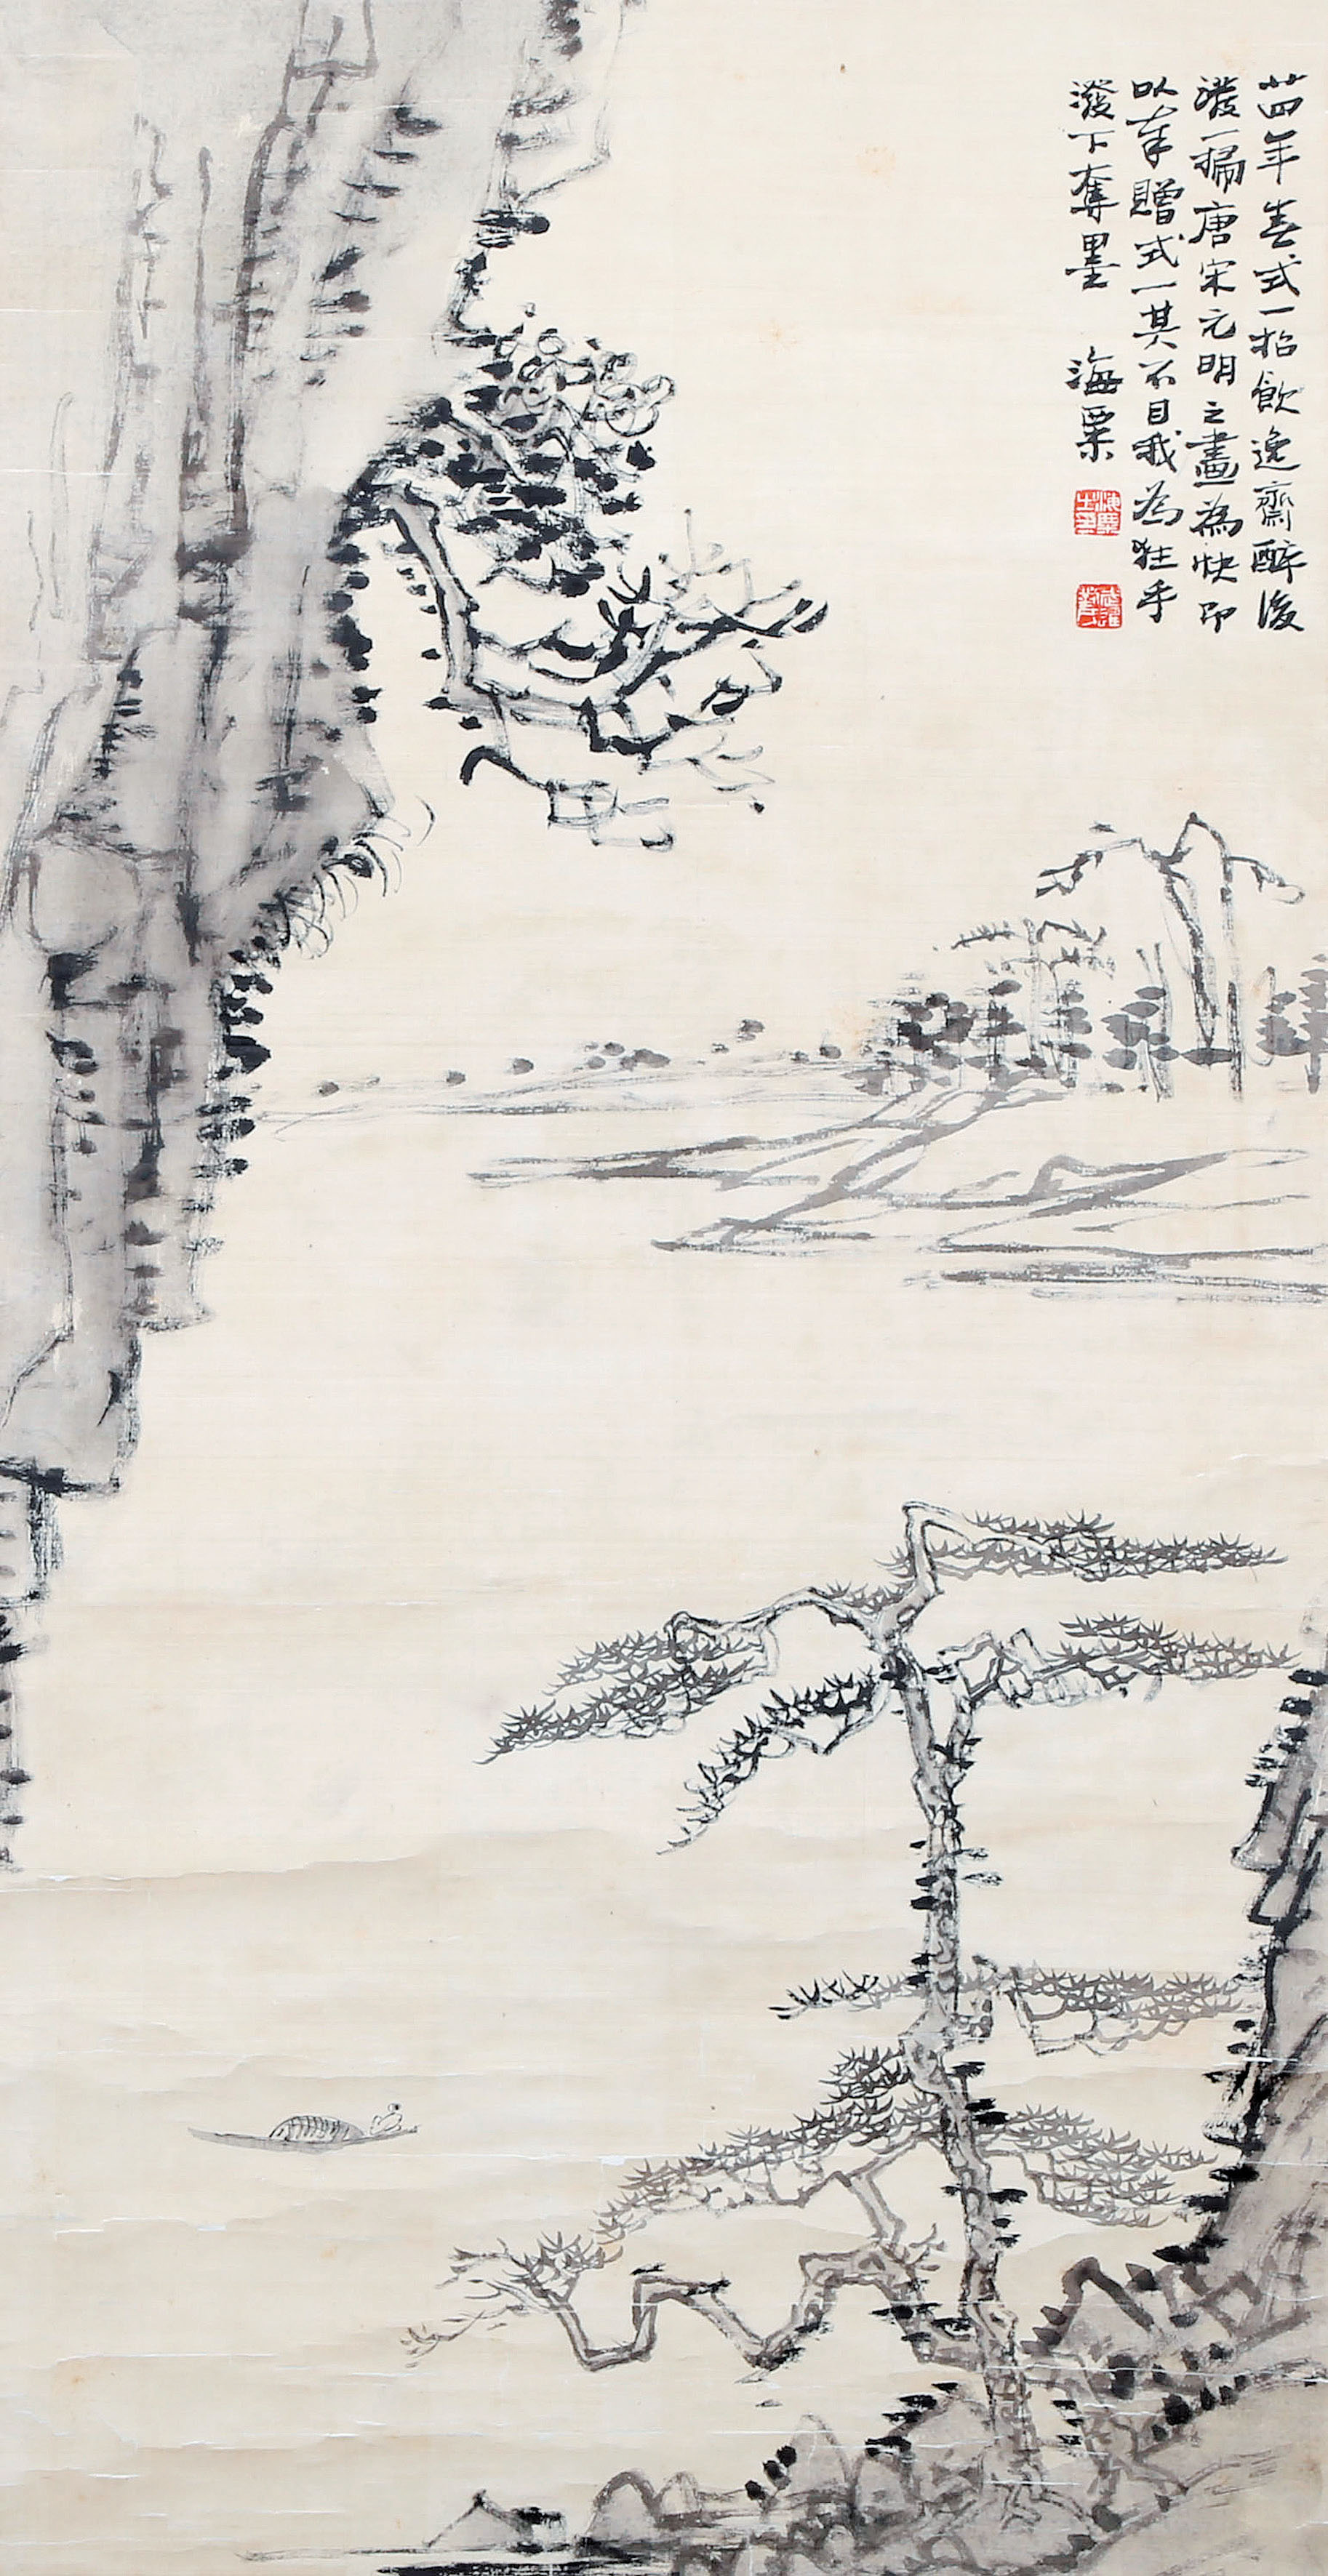 廿四年春式一招飲逸齋醉後
潑一稿唐宋元明之畫為快即
以奉贈式一其不目我為狂乎
潑下奪墨 海粟
海粟